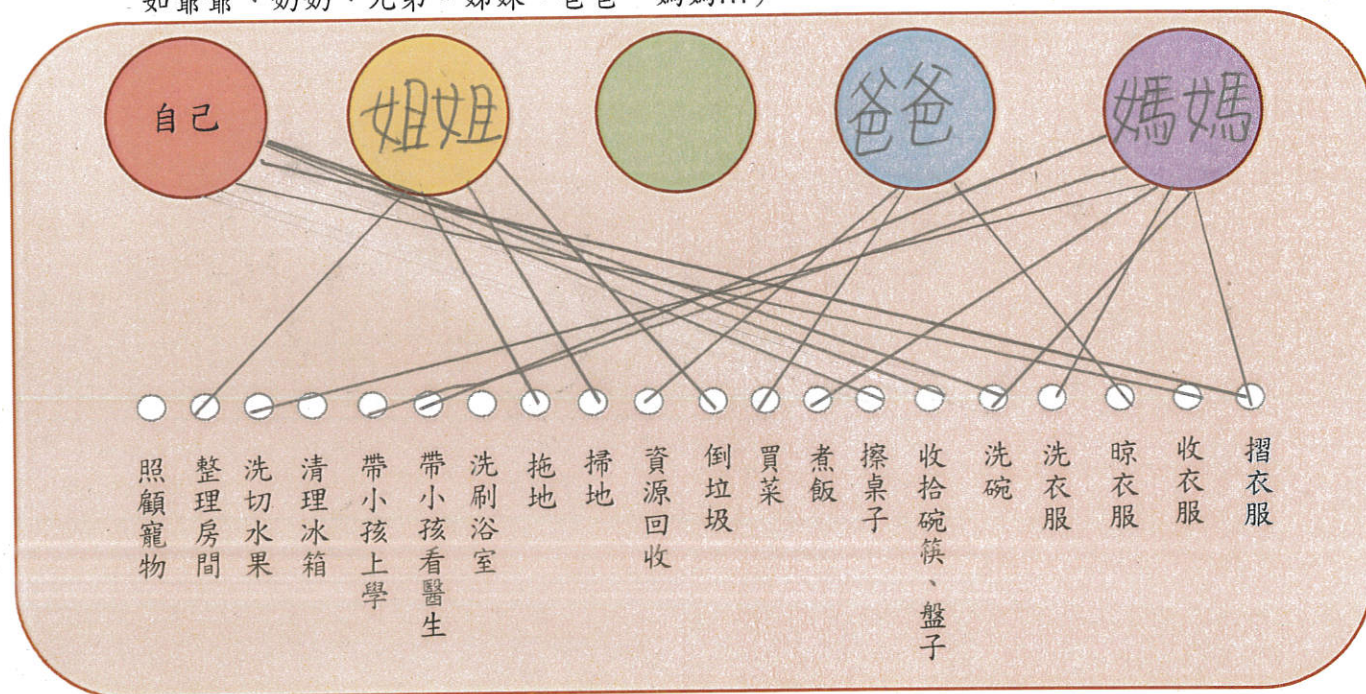 如爺爺、奶奶、兄弟、姊妹、爸爸、媽媽...)
自己
姐姐
爸爸
媽媽
照顧寵物
整理房間
洗切水果
清理冰箱
帶小孩上學
帶小孩看醫生
洗刷浴室
拖地
掃地
資源回收
倒垃圾
買菜
煮飯
擦桌子
收拾碗筷、盤子
洗碗
洗衣服
晾衣服
收衣服
摺衣服